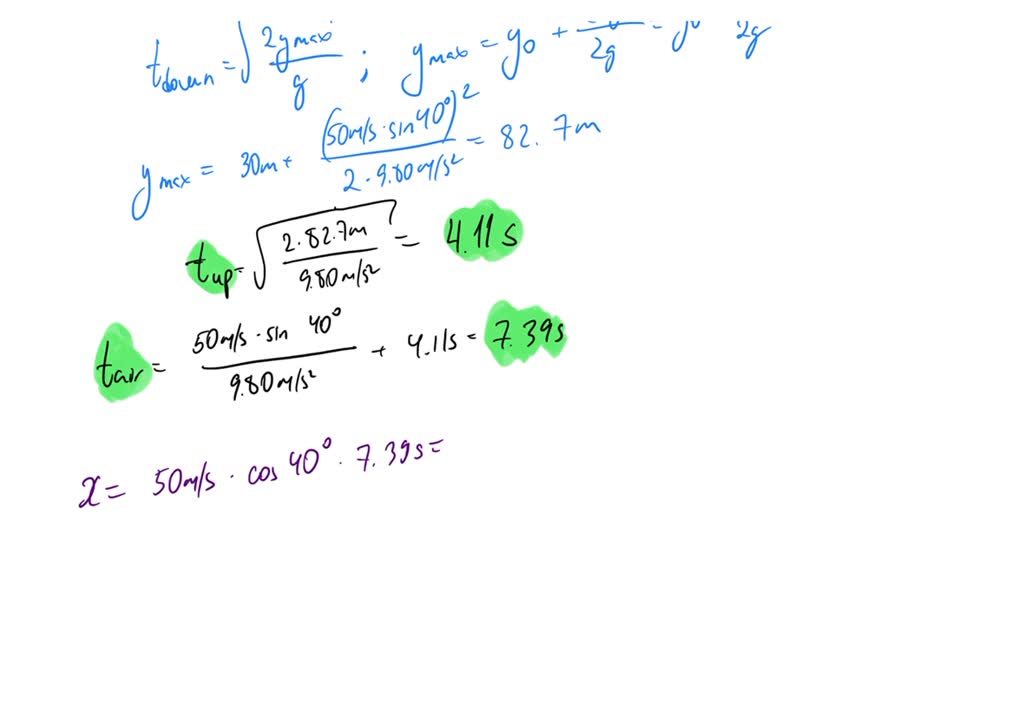 t_down = √(2y_max / g) ; y_max = y_0 + / 2g = y_0 2g
y_max = 30m + (50m/s · sin 40°)² / 2 · 9.80m/s² = 82.7m
t_up = √(2 · 82.7m / 9.80m/s²) = 4.11 s
t_air = 50m/s · sin 40° / 9.80m/s² + 4.11s = 7.39s
x = 50m/s · cos 40° · 7.39s =